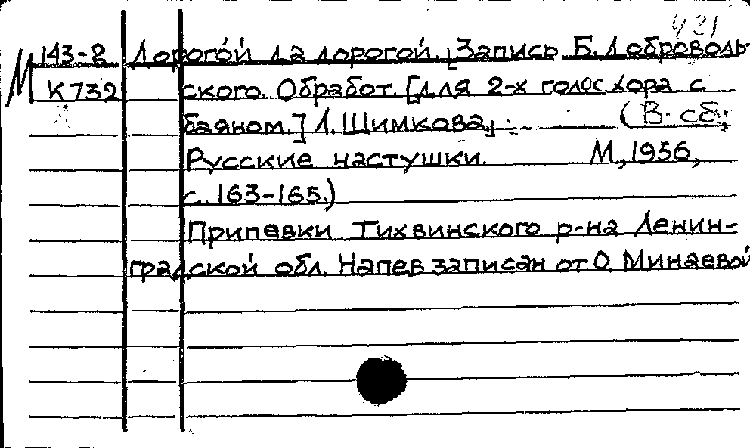 431
143-2 Дорогой да дорогой. [Запись Б. Доброволь
М К 732 ского. Обработ. [для 2-х голос хора с
баяном.] Л. Шимкова, (В сб.:
Русские частушки. М., 1956,
с. 163-165.)
Припевки Тихвинского р-на Ленин-
градской обл. Напев записан от О. Минаевой